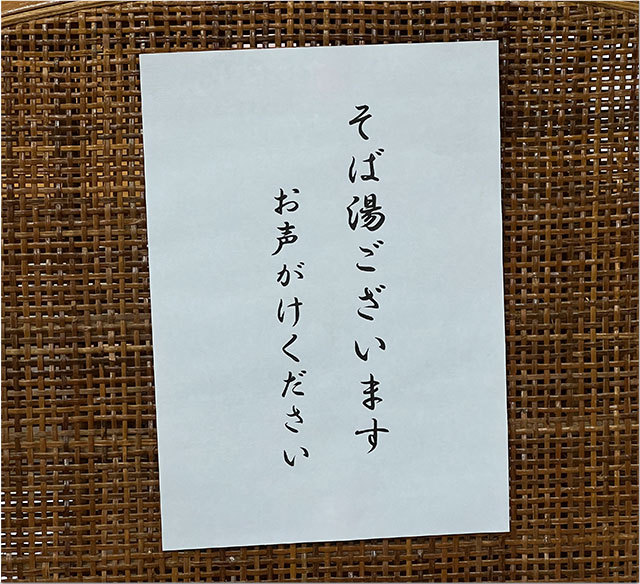 そば湯ございます
お声がけください